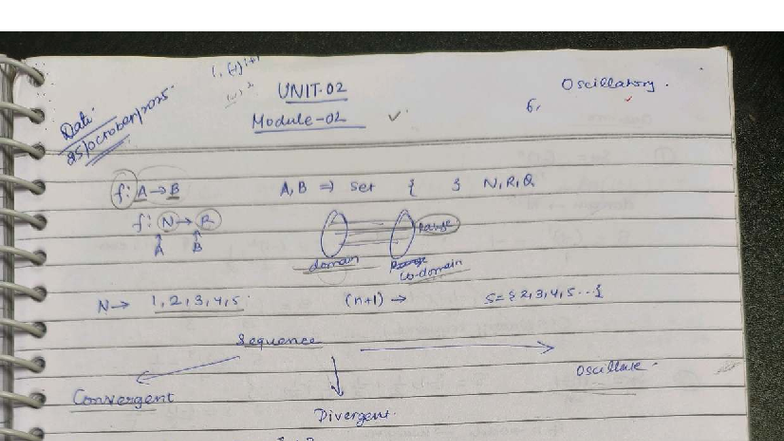 1, (-1)^{i+1}
UNIT-02
Oscillatory.
6,
Module-02 ✓
Date:
25/october/2025.
f: A → B
A, B ⇒ set { } N, R, Q
f: N → R
A B
range
domain
Co-domain
N → 1, 2, 3, 4, 5
(n+1) →
S = { 2, 3, 4, 5 ... {
Sequence
Convergent
Divergent.
Oscillate.